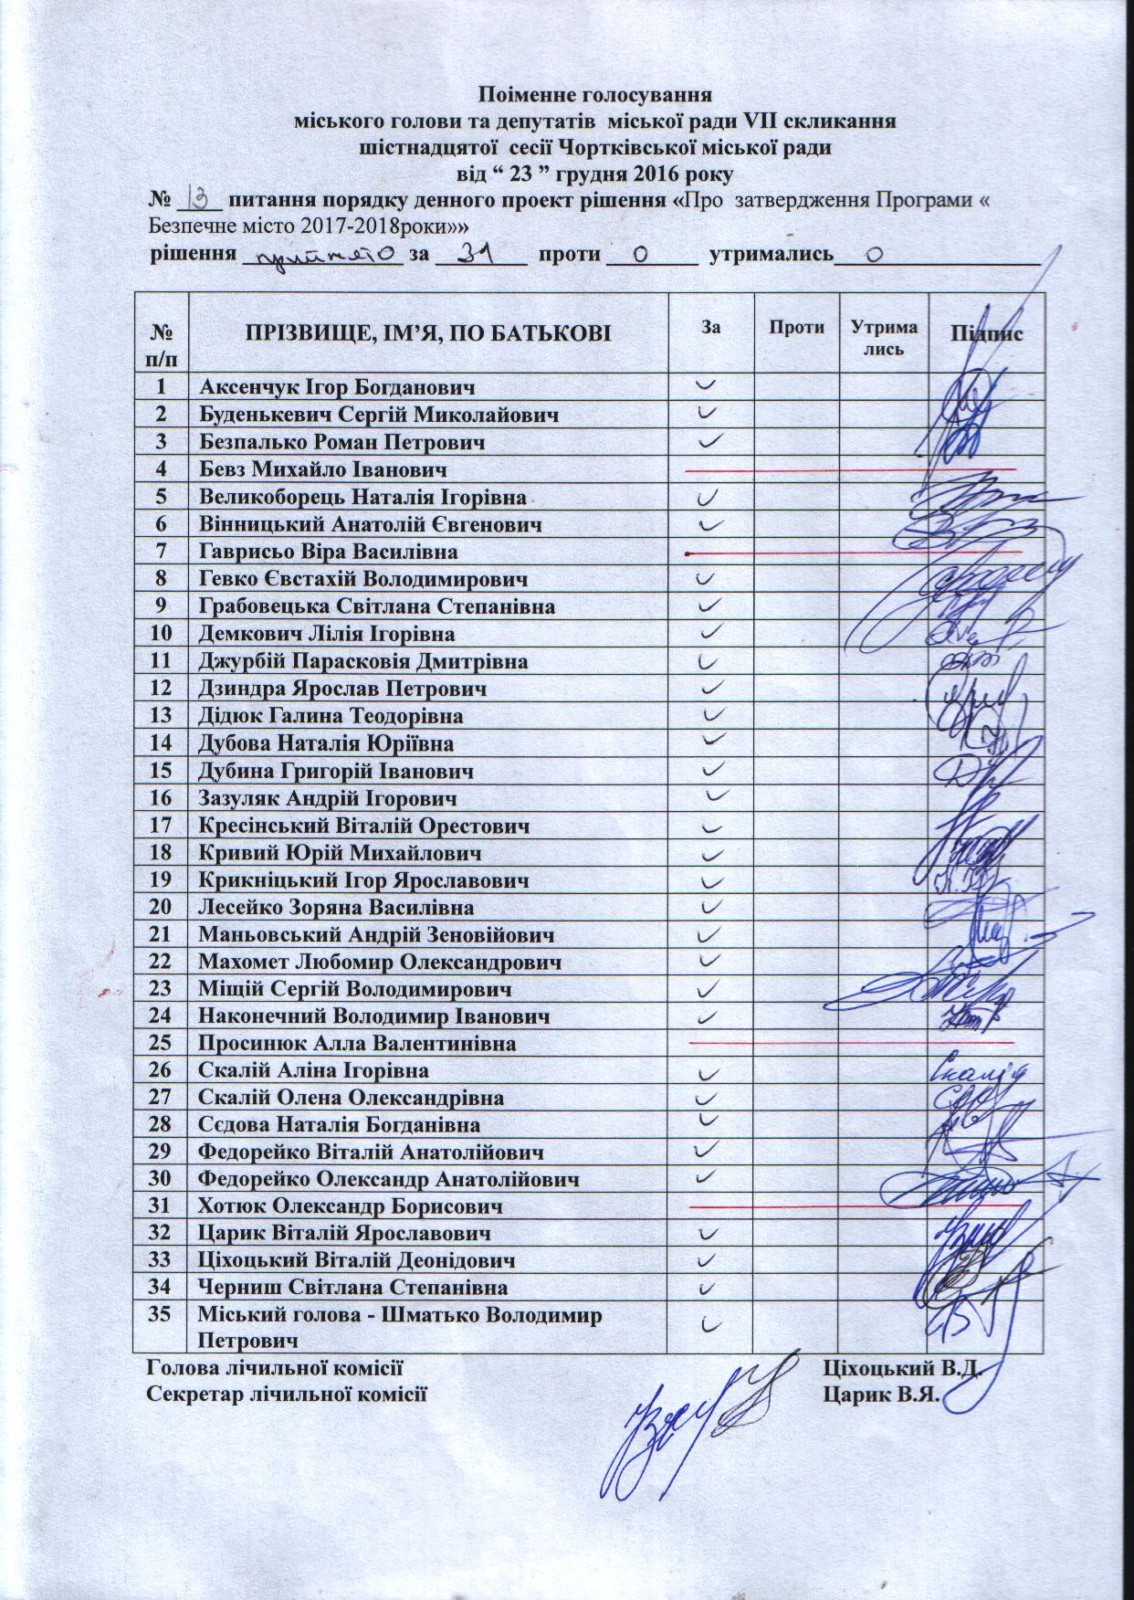 Поіменне голосування
міського голови та депутатів міської ради VII скликання
шістнадцятої сесії Чортківської міської ради
від “ 23 ” грудня 2016 року
№ 13 питання порядку денного проект рішення «Про затвердження Програми «
Безпечне місто 2017-2018роки»»
рішення прийнято за 31 проти 0 утримались 0
№ п/п ПРІЗВИЩЕ, ІМ’Я, ПО БАТЬКОВІ За Проти Утрима лись Підпис
1 Аксенчук Ігор Богданович
2 Буденькевич Сергій Миколайович
3 Безпалько Роман Петрович
4 Бевз Михайло Іванович
5 Великоборець Наталія Ігорівна
6 Вінницький Анатолій Євгенович
7 Гаврисьо Віра Василівна
8 Гевко Євстахій Володимирович
9 Грабовецька Світлана Степанівна
10 Демкович Лілія Ігорівна
11 Джурбій Парасковія Дмитрівна
12 Дзиндра Ярослав Петрович
13 Дідюк Галина Теодорівна
14 Дубова Наталія Юріївна
15 Дубина Григорій Іванович
16 Зазуляк Андрій Ігорович
17 Кресінський Віталій Орестович
18 Кривий Юрій Михайлович
19 Крикніцький Ігор Ярославович
20 Лесейко Зоряна Василівна
21 Маньовський Андрій Зеновійович
22 Махомет Любомир Олександрович
23 Міщій Сергій Володимирович
24 Наконечний Володимир Іванович
25 Просинюк Алла Валентинівна
26 Скалій Аліна Ігорівна
27 Скалій Олена Олександрівна
28 Сєдова Наталія Богданівна
29 Федорейко Віталій Анатолійович
30 Федорейко Олександр Анатолійович
31 Хотюк Олександр Борисович
32 Царик Віталій Ярославович
33 Ціхоцький Віталій Деонідович
34 Черниш Світлана Степанівна
35 Міський голова - Шматько Володимир
Петрович
Голова лічильної комісії Ціхоцький В.Д.
Секретар лічильної комісії Царик В.Я.